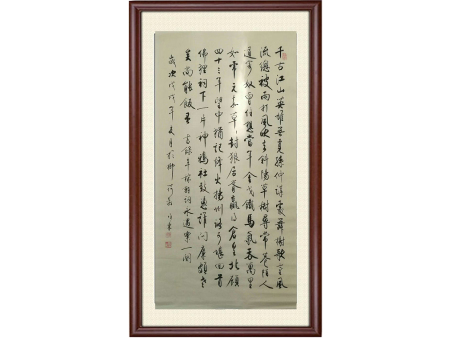 千古江山英雄無覓孫仲謀處舞榭歌臺風
流總被雨打風吹去斜陽草樹尋常巷陌人
道寄奴曾住想當年金戈鐵馬氣吞萬里
如虎元嘉草草封狼居胥贏得倉皇北顧
四十三年望中猶記烽火揚州路可堪回首
佛狸祠下一片神鴉社鼓憑誰問廉頗老
矣尚能飯否 辛稼軒詞永遇樂一闋
歲次戊戌年夏月於